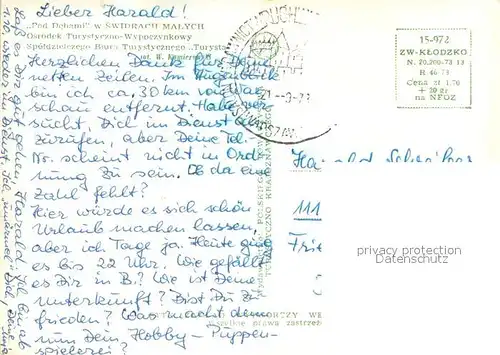 Lieber Harald!
"Pod Dębami" w ŚWIDRACH MAŁYCH
Ośrodek Turystyczno-Wypoczynkowy
Spółdzielczego Biura Turystycznego „Turysta
Herzlichen Dank für Deine
netten Zeilen. Im Augenblick
bin ich ca. 30 km von War-
schau entfernt. Habe ver-
sucht, Dich im Dienst an-
zurufen, aber Deine Tel.-
Nr. scheint nicht in Ord-
nung zu sein. Ob da eine
Zahl fehlt?
Hier würde es sich schön
Urlaub machen lassen,
aber ich Tage ja. Heute ging
es bis 22 Uhr. Wie gefällt
es Dir in B.? Wie ist Deine
Unterkunft? Bist Du Zu-
frieden? Was macht denn
nun Dein Hobby - Puppen-
spielerei?
Laß es Dir gut gehen, Harald. Ich bin ab
1.10. wieder im Dienst. Ich umarme Dich, Deine
15-972
ZW-KŁODZKO
N. 20.200-73 13
R 46 73
Cena zł 1,70
+ 30 gr
na NFOZ
Harald
111
Frie
privacy protection
watermark
wszelkie prawa zastrzeż